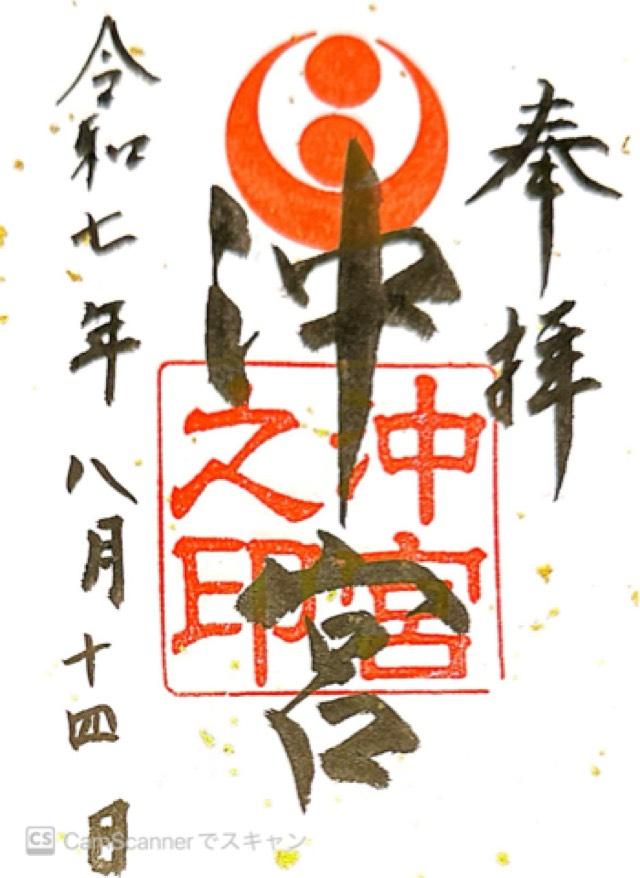 奉拝
沖宮
沖宮
之印
令和七年 八月十四日
CS CamScannerでスキャン